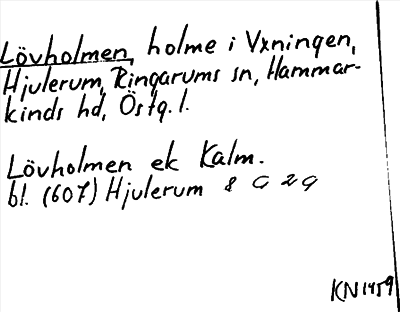 Lövholmen, holme i Yxningen,
Hjulerum, Ringarums sn, Hammar-
kinds hd, Östg. l.
Lövholmen ek Kalm.
bl. (607) Hjulerum 8 G 2 g
KN 1959